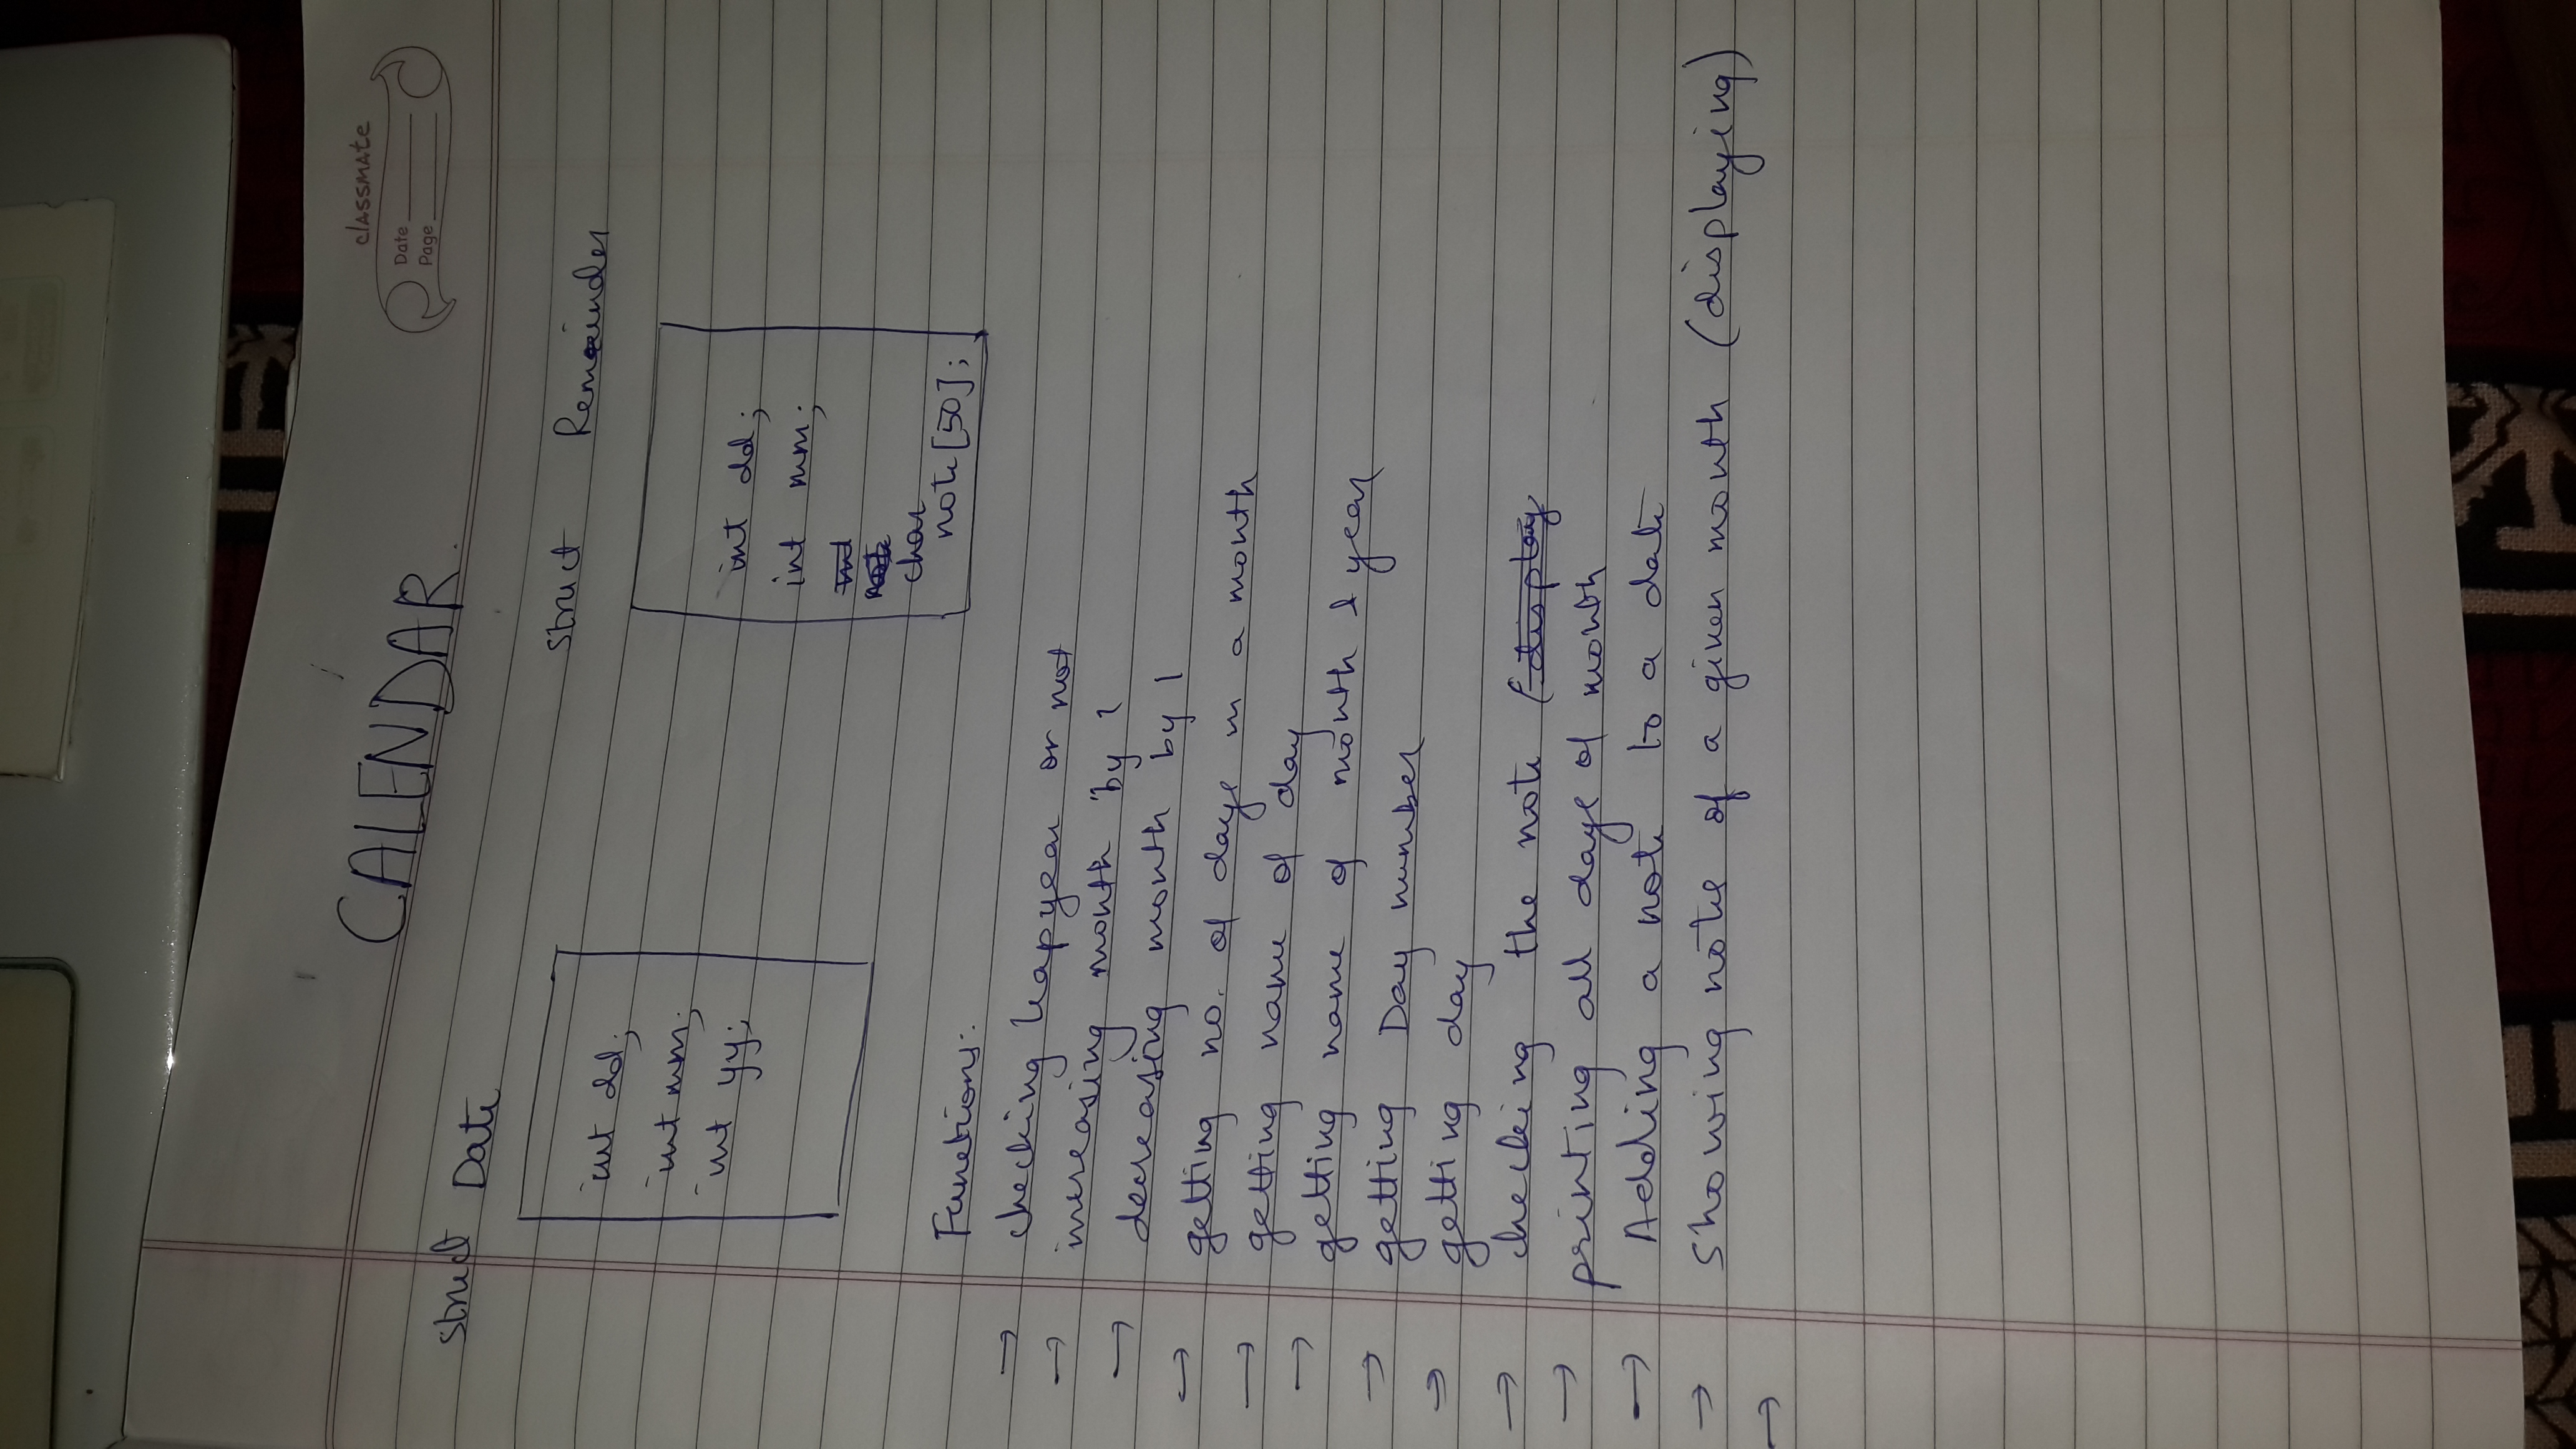 classmate
Date
Page
CALENDAR.
struct Date
int dd;
int mm;
int yy;
struct Remainder
int dd;
int mm;
char
note [50];
Functions:
→ checking leapyear or not
→ increasing month by 1
→ decreasing month by 1
→ getting no. of days in a month
→ getting name of day
→ getting name of month & year
→ getting Day number
→ getting day
→ checking the note (display
→ printing all days of month
→ Adding a note to a date
→ Showing notes of a given month (displaying)
→